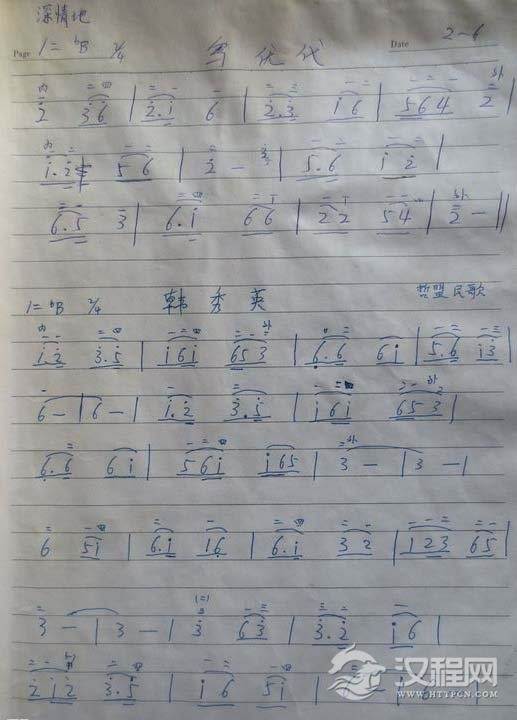 深情地
Page 1=♭B 2/4 Date 2~6
2 36 | 2.i 6 | 2.3 i6 | 564 2 |
i.2 56 | 2 - | 5.6 i2 |
6.5 3 | 6.i 66 | 22 54 | 2 - ||
1=♭B 2/4 韩秀英 哲盟民歌
i.2 3.5 | i6i 653 | 6.6 6i | 5.6 i3 |
6 - | 6 - | i.2 3.5 | i6i 653 |
6.6 6i | 56i i65 | 3 - | 3 - |
6 5i | 6.i i6 | 6.i 32 | 123 65 |
3 - | 3 - | 3 63 | 3.2 i6 |
2i2 3.5 | i6 5i |
汉程网
WWW.HTTPCN.COM